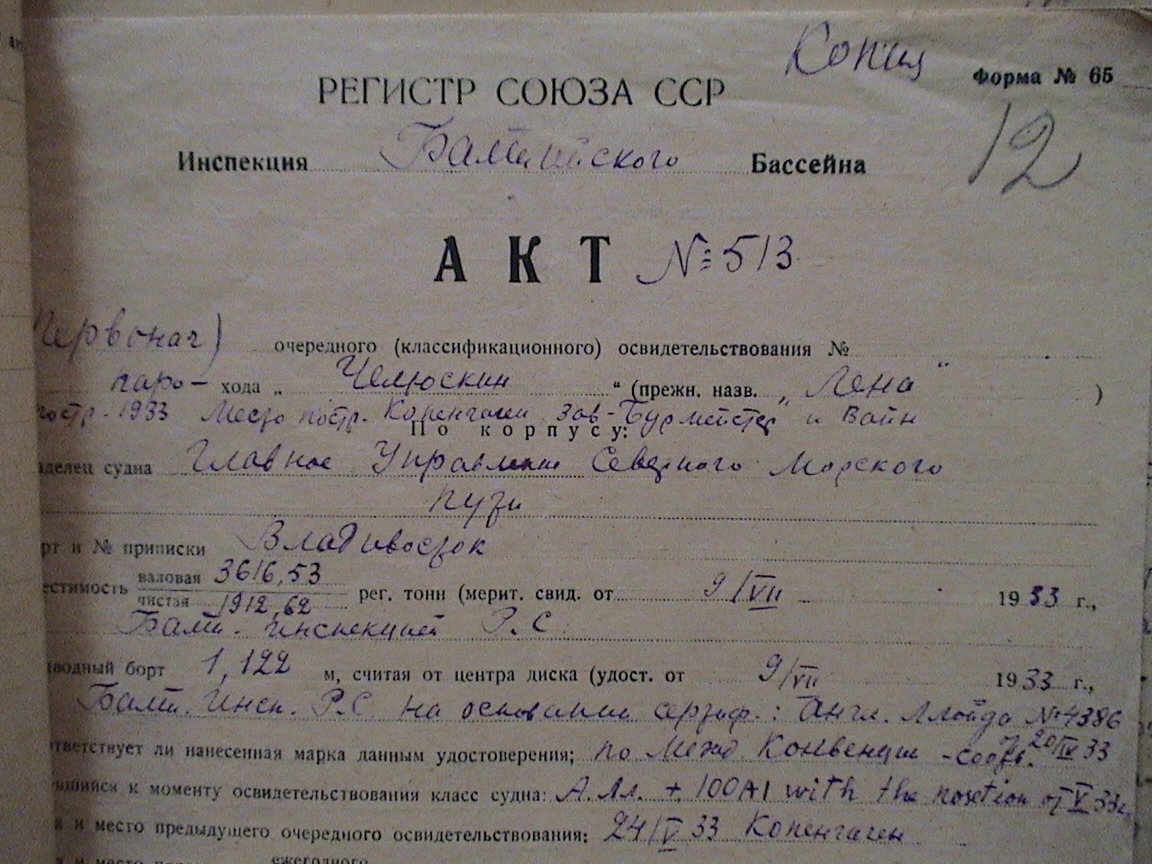 Копия
Форма № 65
РЕГИСТР СОЮЗА ССР
12
Инспекция Балтийского Бассейна
АКТ № 513
Первонач)
очередного (классификационного) освидетельствования № "
паро- хода „ Челюскин " (прежн. назв. „ Лена " )
постр. 1933 Место постр. Копенгаген зав- Бурмейстер и Вайн
По корпусу:
делец судна Главное Управление Северного Морского
пути
рт и № приписки Владивосток
естимость валовая 3616,53
чистая 1912,62 рег. тонн (мерит. свид. от 9/VII 1933 г.,
Балт. Инспекцией Р.С
водный борт 1,122 м, считая от центра диска (удост. от 9/VII 1933 г.,
Балт. Инсп. Р.С. на основании сертиф.: Англ. Ллойда № 4386
от 20/IV 33
тветствует ли нанесенная марка данным удостоверения; по Межд Конвенции - соотв.
вшийся к моменту освидетельствования класс судна: А. Лл. + 100A1 with the notation of V 33г.
а и место предыдущего очередного освидетельствования: 24/V 33 Копенгаген
ежегодного